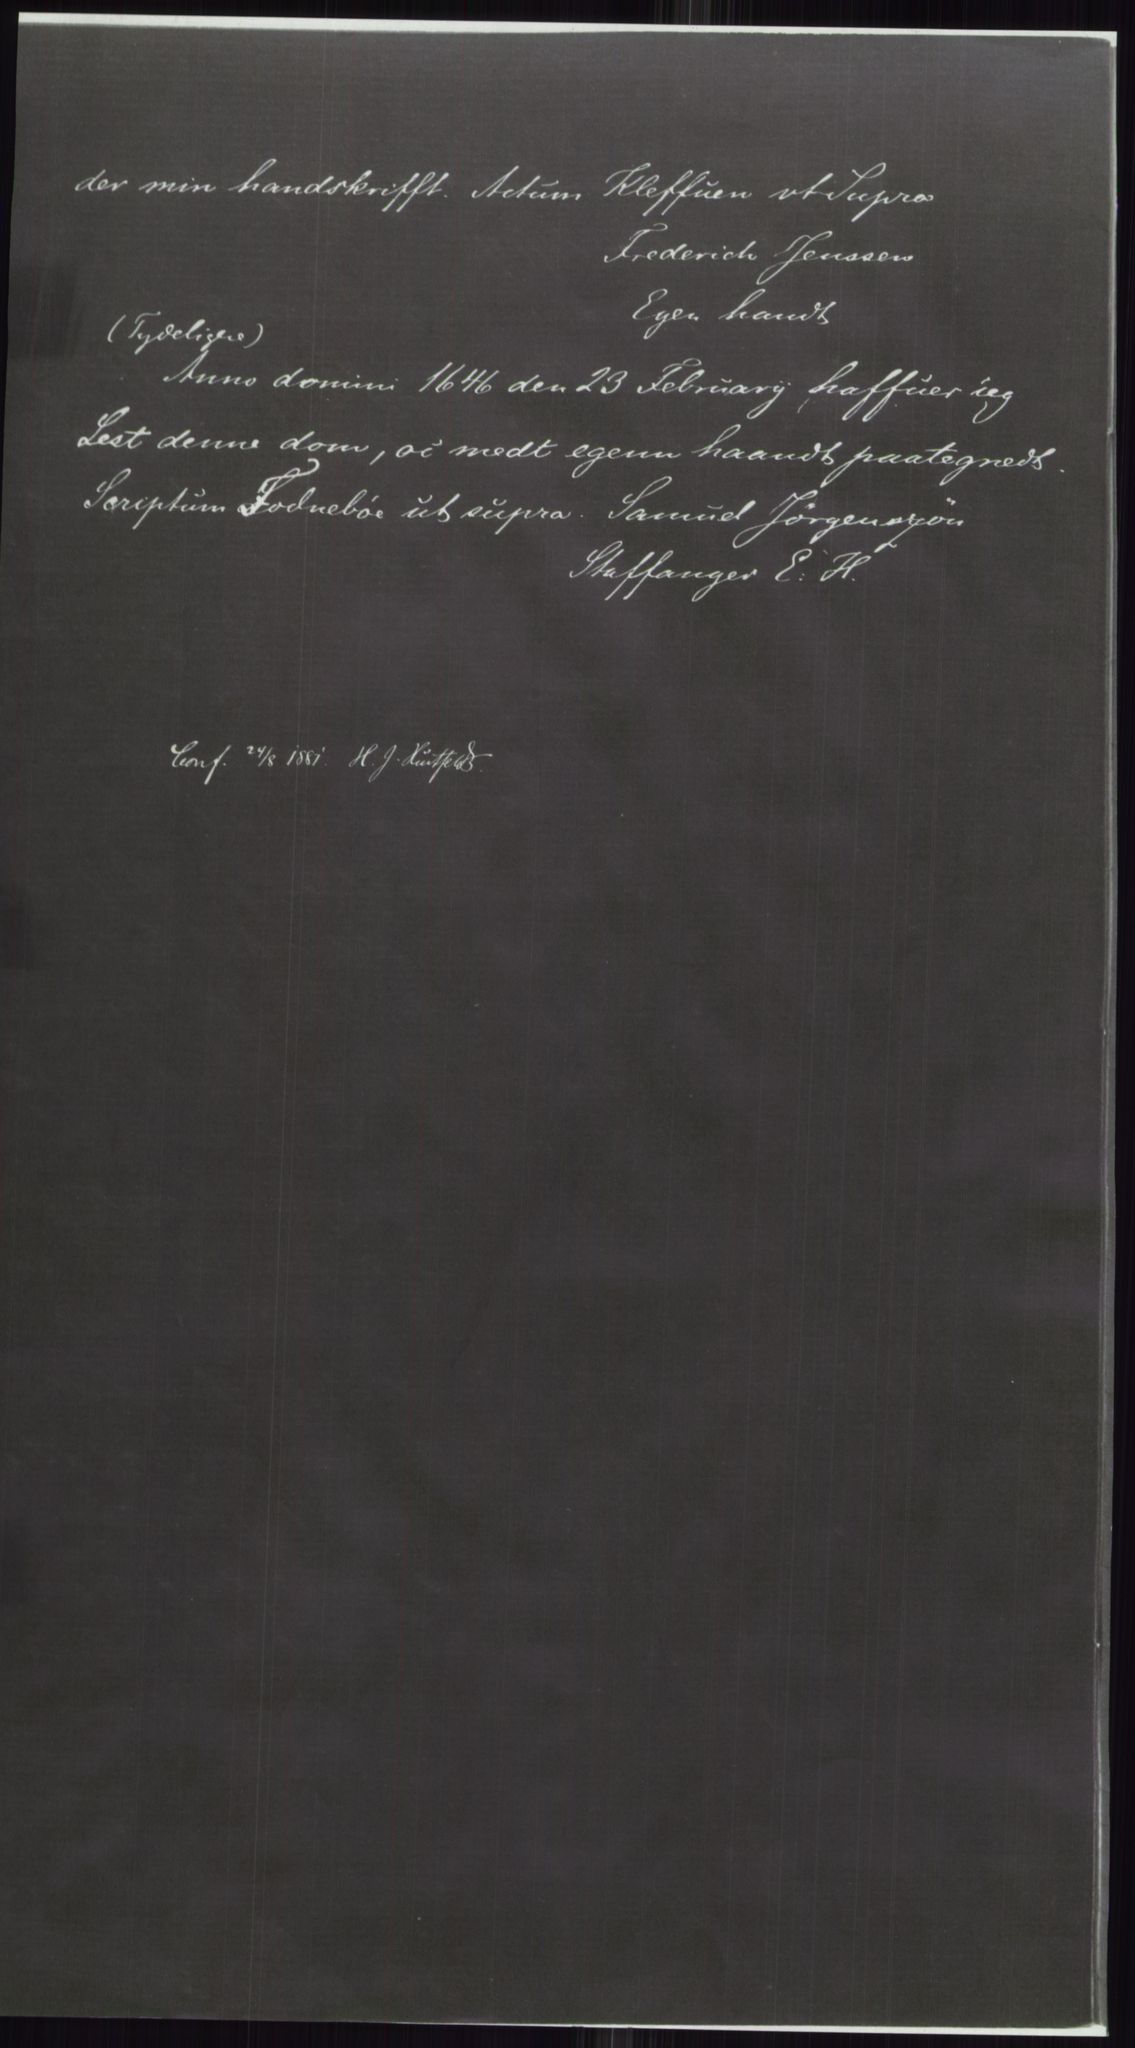 der min handskrifft. Actum Kleffuen vt Supra
Frederich Jenssen
Egen handt
(Tydeligere)
Anno domini 1646 den 23 Februarij haffuer ieg
Lest denne dom, oc medt egenn haandt paategnedt.
Scriptum Fodnebøe ut supra. Samuel Jörgenszön
Staffanger E. H.
Conf. 24/8 1881. H. J. Huitfeldt.